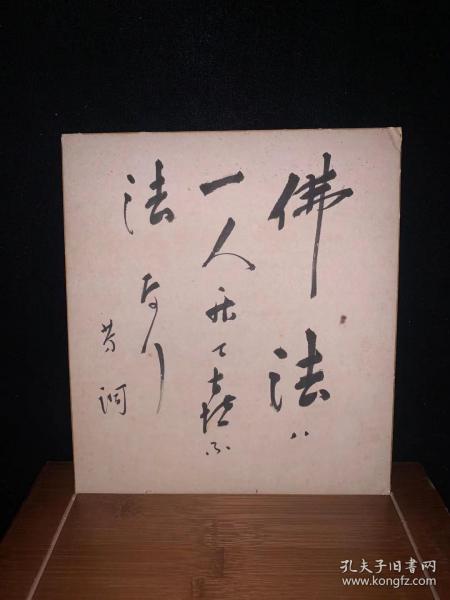 佛法ハ
一人居て喜ふ
法なり
普洞
孔夫子旧书网
www.kongfz.com